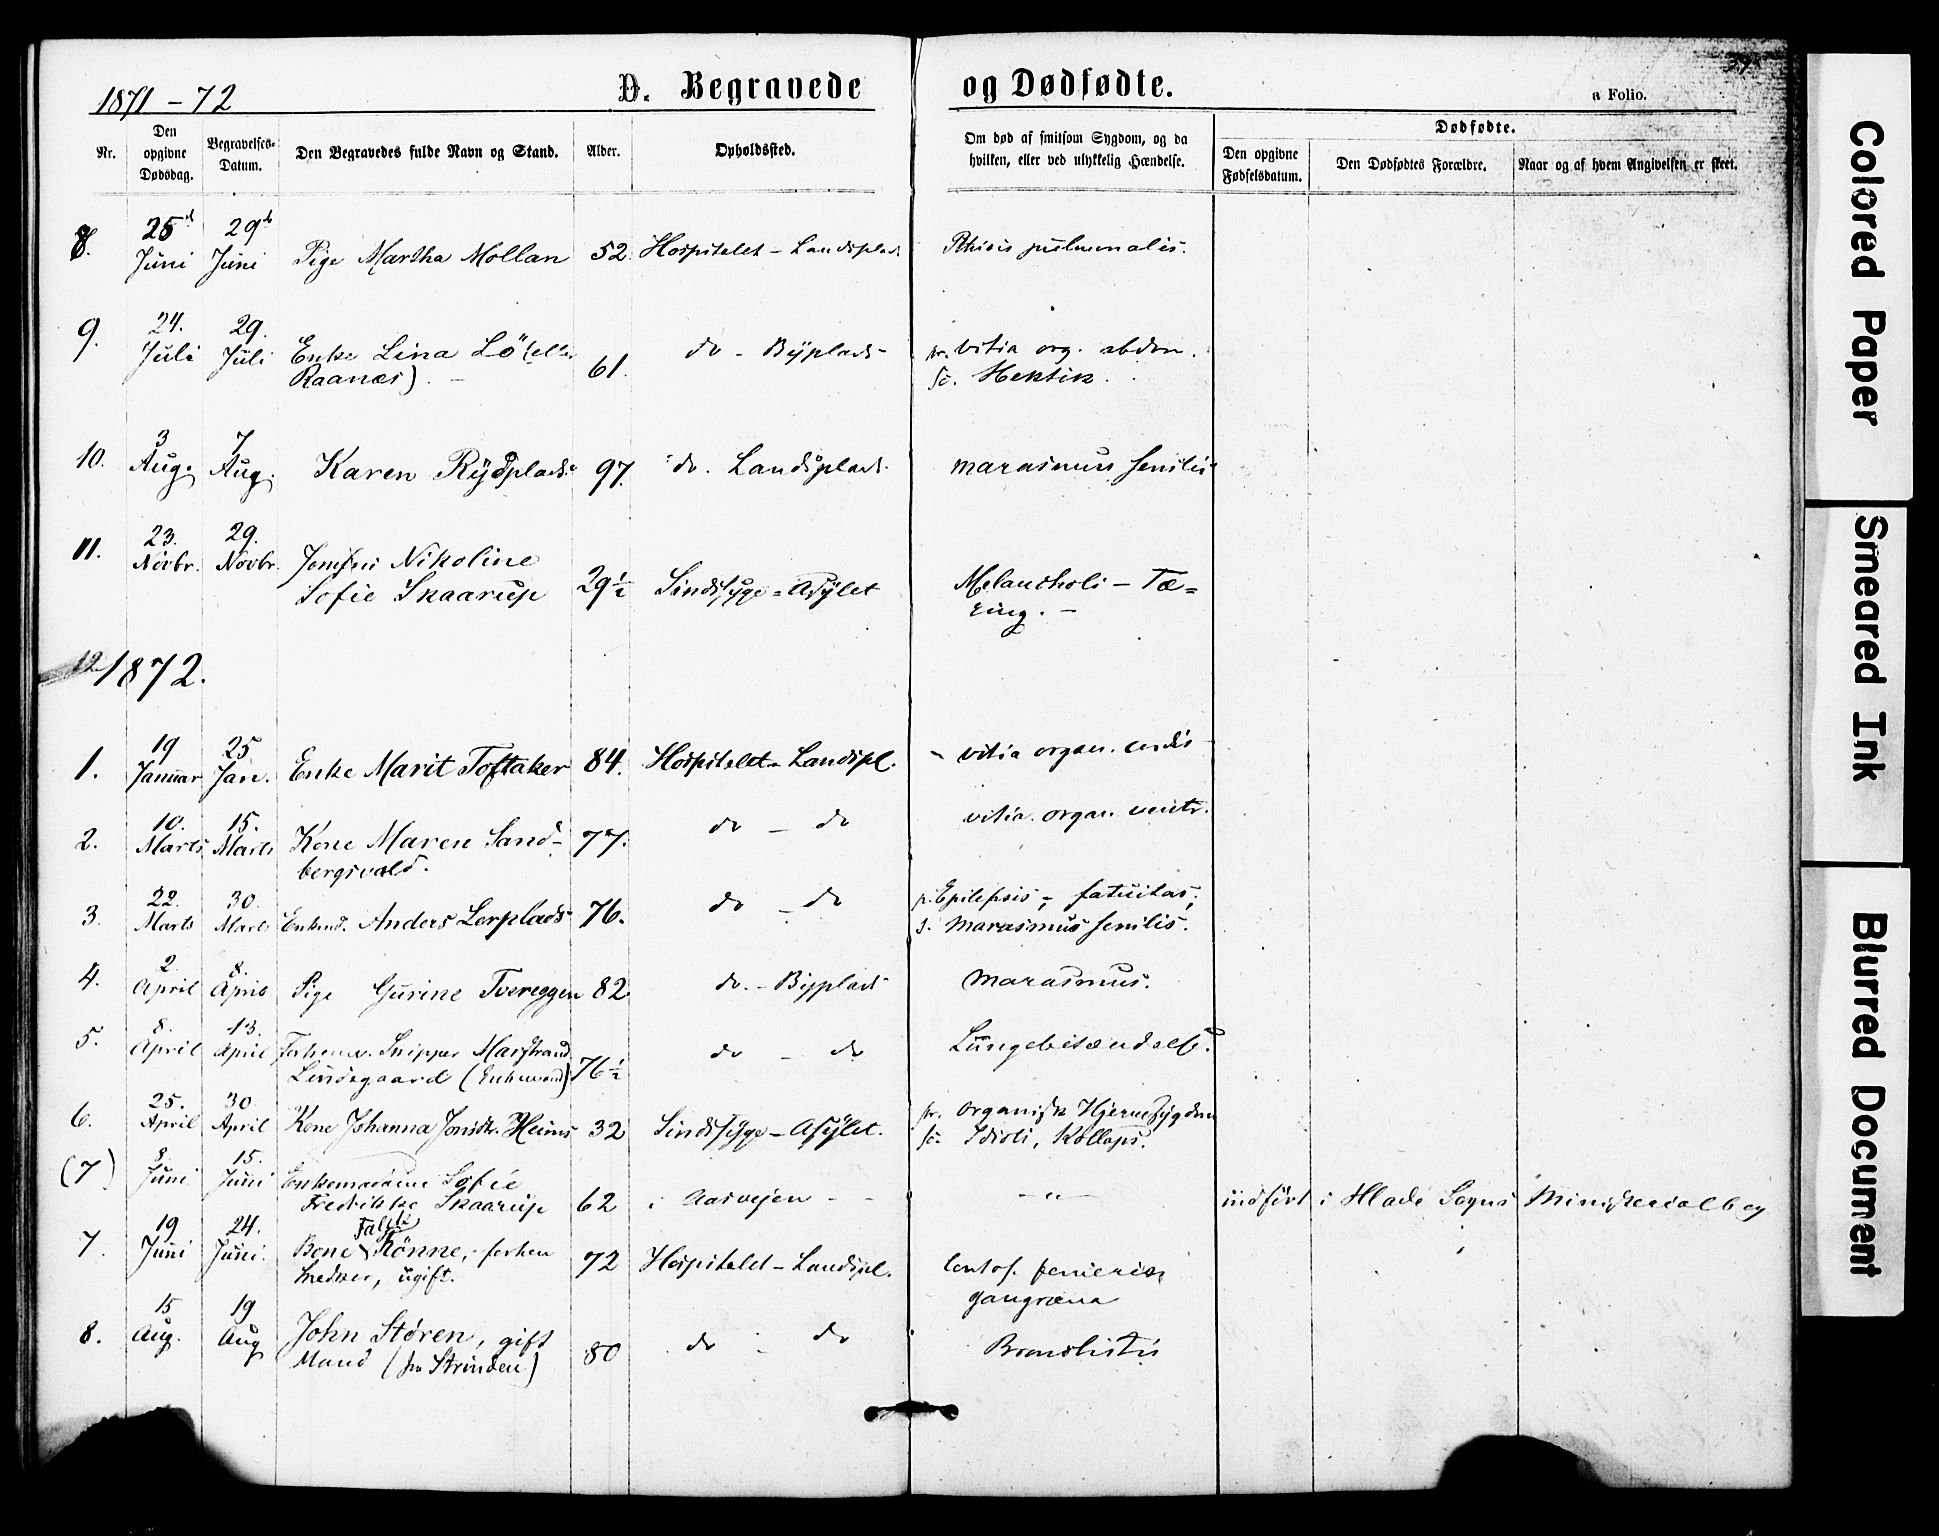 1871-72
D. Begravede og Dødfødte.
a Folio.
Nr.
Den opgivne Dødsdag.
Begravelses-Datum.
Den Begravedes fulde Navn og Stand.
Alder.
Opholdssted.
Om død af smitsom Sygdom, og da hvilken, eller ved ulykkelig Hændelse.
Dødfødte.
Den opgivne Fødselsdatum.
Den Dødfødtes Forældre.
Naar og af hvem Angivelsen er skeet.
8. 25d Juni 29d Juni Pige Martha Mollan 52. Hospitalet - Landsplads Pthisis pulmonalis.
9. 24. Juli 29. Juli Enke Lina Lö (eller
Raanæs). - 61. do - Byplads - pr. vitia org. abdom.
sc. Hektik.
10. 3 Aug. 7 Aug. Karen Rydplads 97. do. Landsplads. marasmus senilis
11. 23. Novbr. 29. Novbr. Jomfru Nikoline
Sofie Skaarup 29½ Sindssyge-Asylet Melancholi - Tæ=
ring. -
12 1872.
1. 19 Januar 25 Jan. Enke Marit Toftaker 84. Hospitalet - Landspl. vitia organ. cordis
2. 10. Marts 15. Marts Kone Maren Sand-
bergsvald. 77. do - do vitia organ. ventr.
3. 22. Marts 30. Marts Enkmd. Anders Lerplads 76. do - do p. Epilepsis, fatuitas,
s. Marasmus senilis.
4. 2 April 8. April Pige Gurine Tvereggen 82 do. - Byplads Marasmus.
5. 8. April 13. April Forhenv. Skipper Marstrand
Lindegaard (Enkemand) 76½ do - do Lungebetændelse.
6. 25. April 30. April Kone Johanna Jonsdtr. Heims 32 Sindssyge-Asylet. pr. organisk Hjernesygdom
sc. Idioti, Kollaps.
(7) 8. Juni 15. Juni Enkemadame Sofie
Fredrikke Skaarup 62 i Aasvejen - - - " - indført i Hlade Sogns Ministerialbog
7. 19 Juni 24. Juni. Bone Falck Rönne, forhen
Snedker, ugift. 72 Hospitalet - Landspl.
gangræna
8. 15 Aug. 19 Aug John Støren, gift
Mand (fra Strinden) 80 do - do Bronchitis
Colored Paper
Smeared Ink
Blurred Document